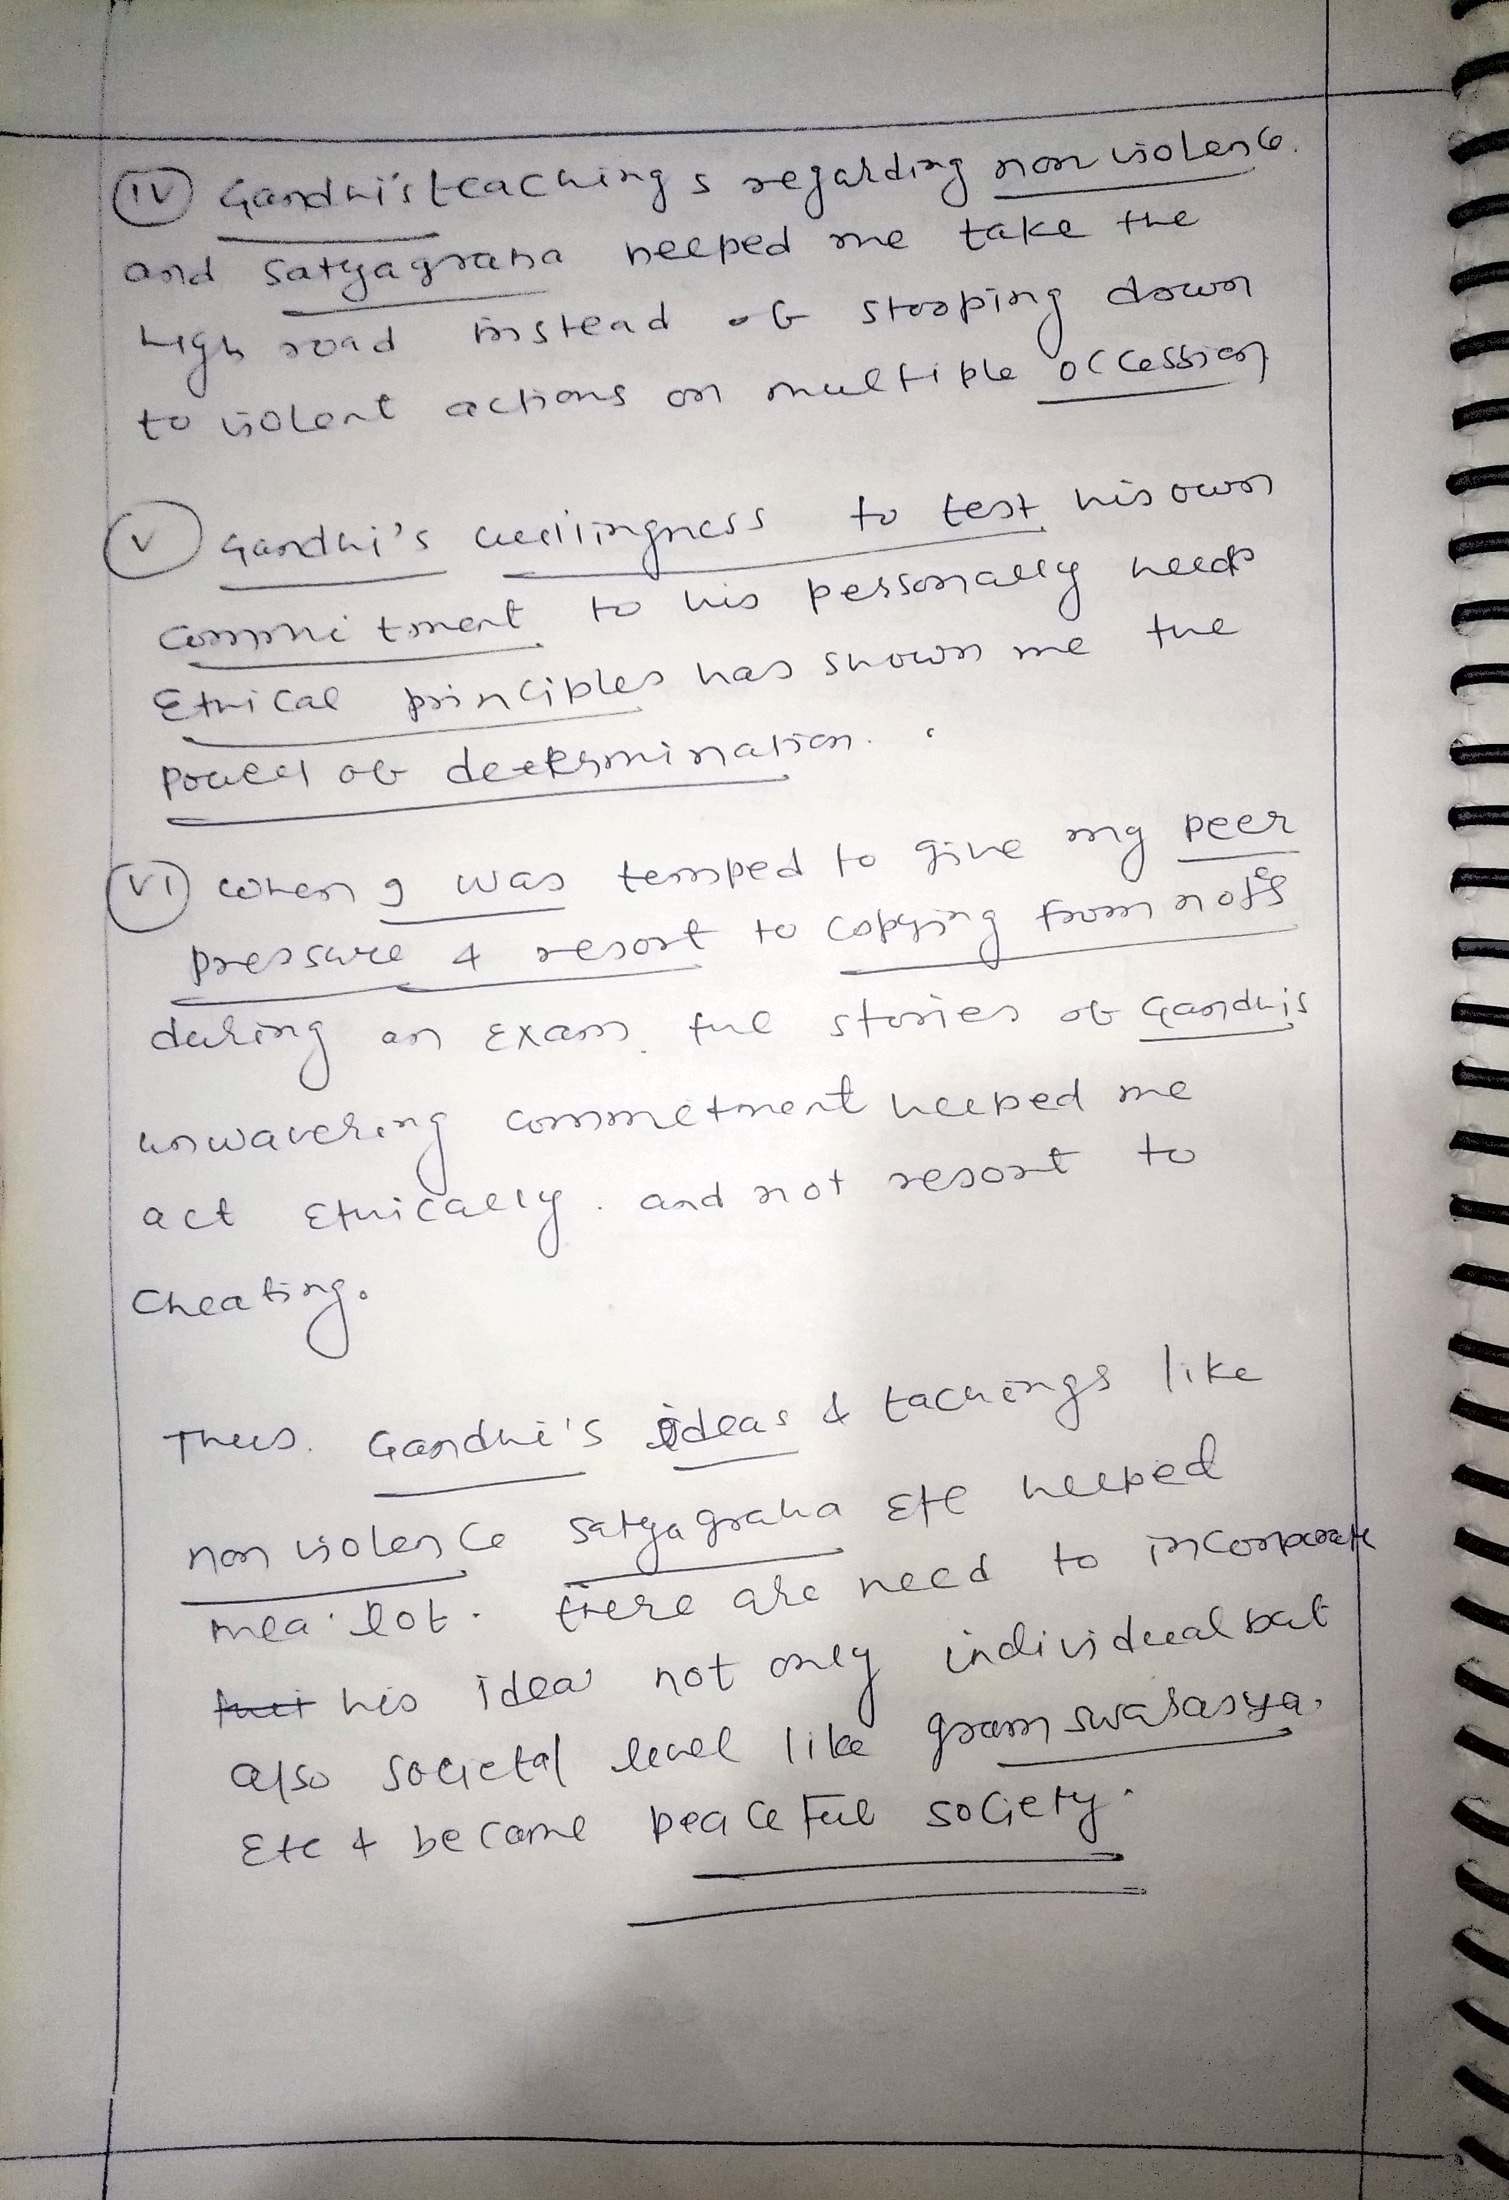 (IV) Gandhi's teachings regarding non violence.
and satyagraha helped me take the
high road instead of stooping down
to violent actions on multiple occession
(V) Gandhi's willingness to test his own
commitment to his personally held
Ethical principles has shown me the
power of determination.
(VI) when I was temped to give my peer
pressure & resort to copying from notes
during an Exam. the stories of Gandhis
unwavering commetment helped me
act Ethically. and not resort to
cheating.
Thus. Gandhi's ideas & tachings like
non violence satyagraha Etc helped
me a lot. there are need to incorporate
his idea not only individual but
also societal level like gram swarasya.
Etc & become peaceful society.